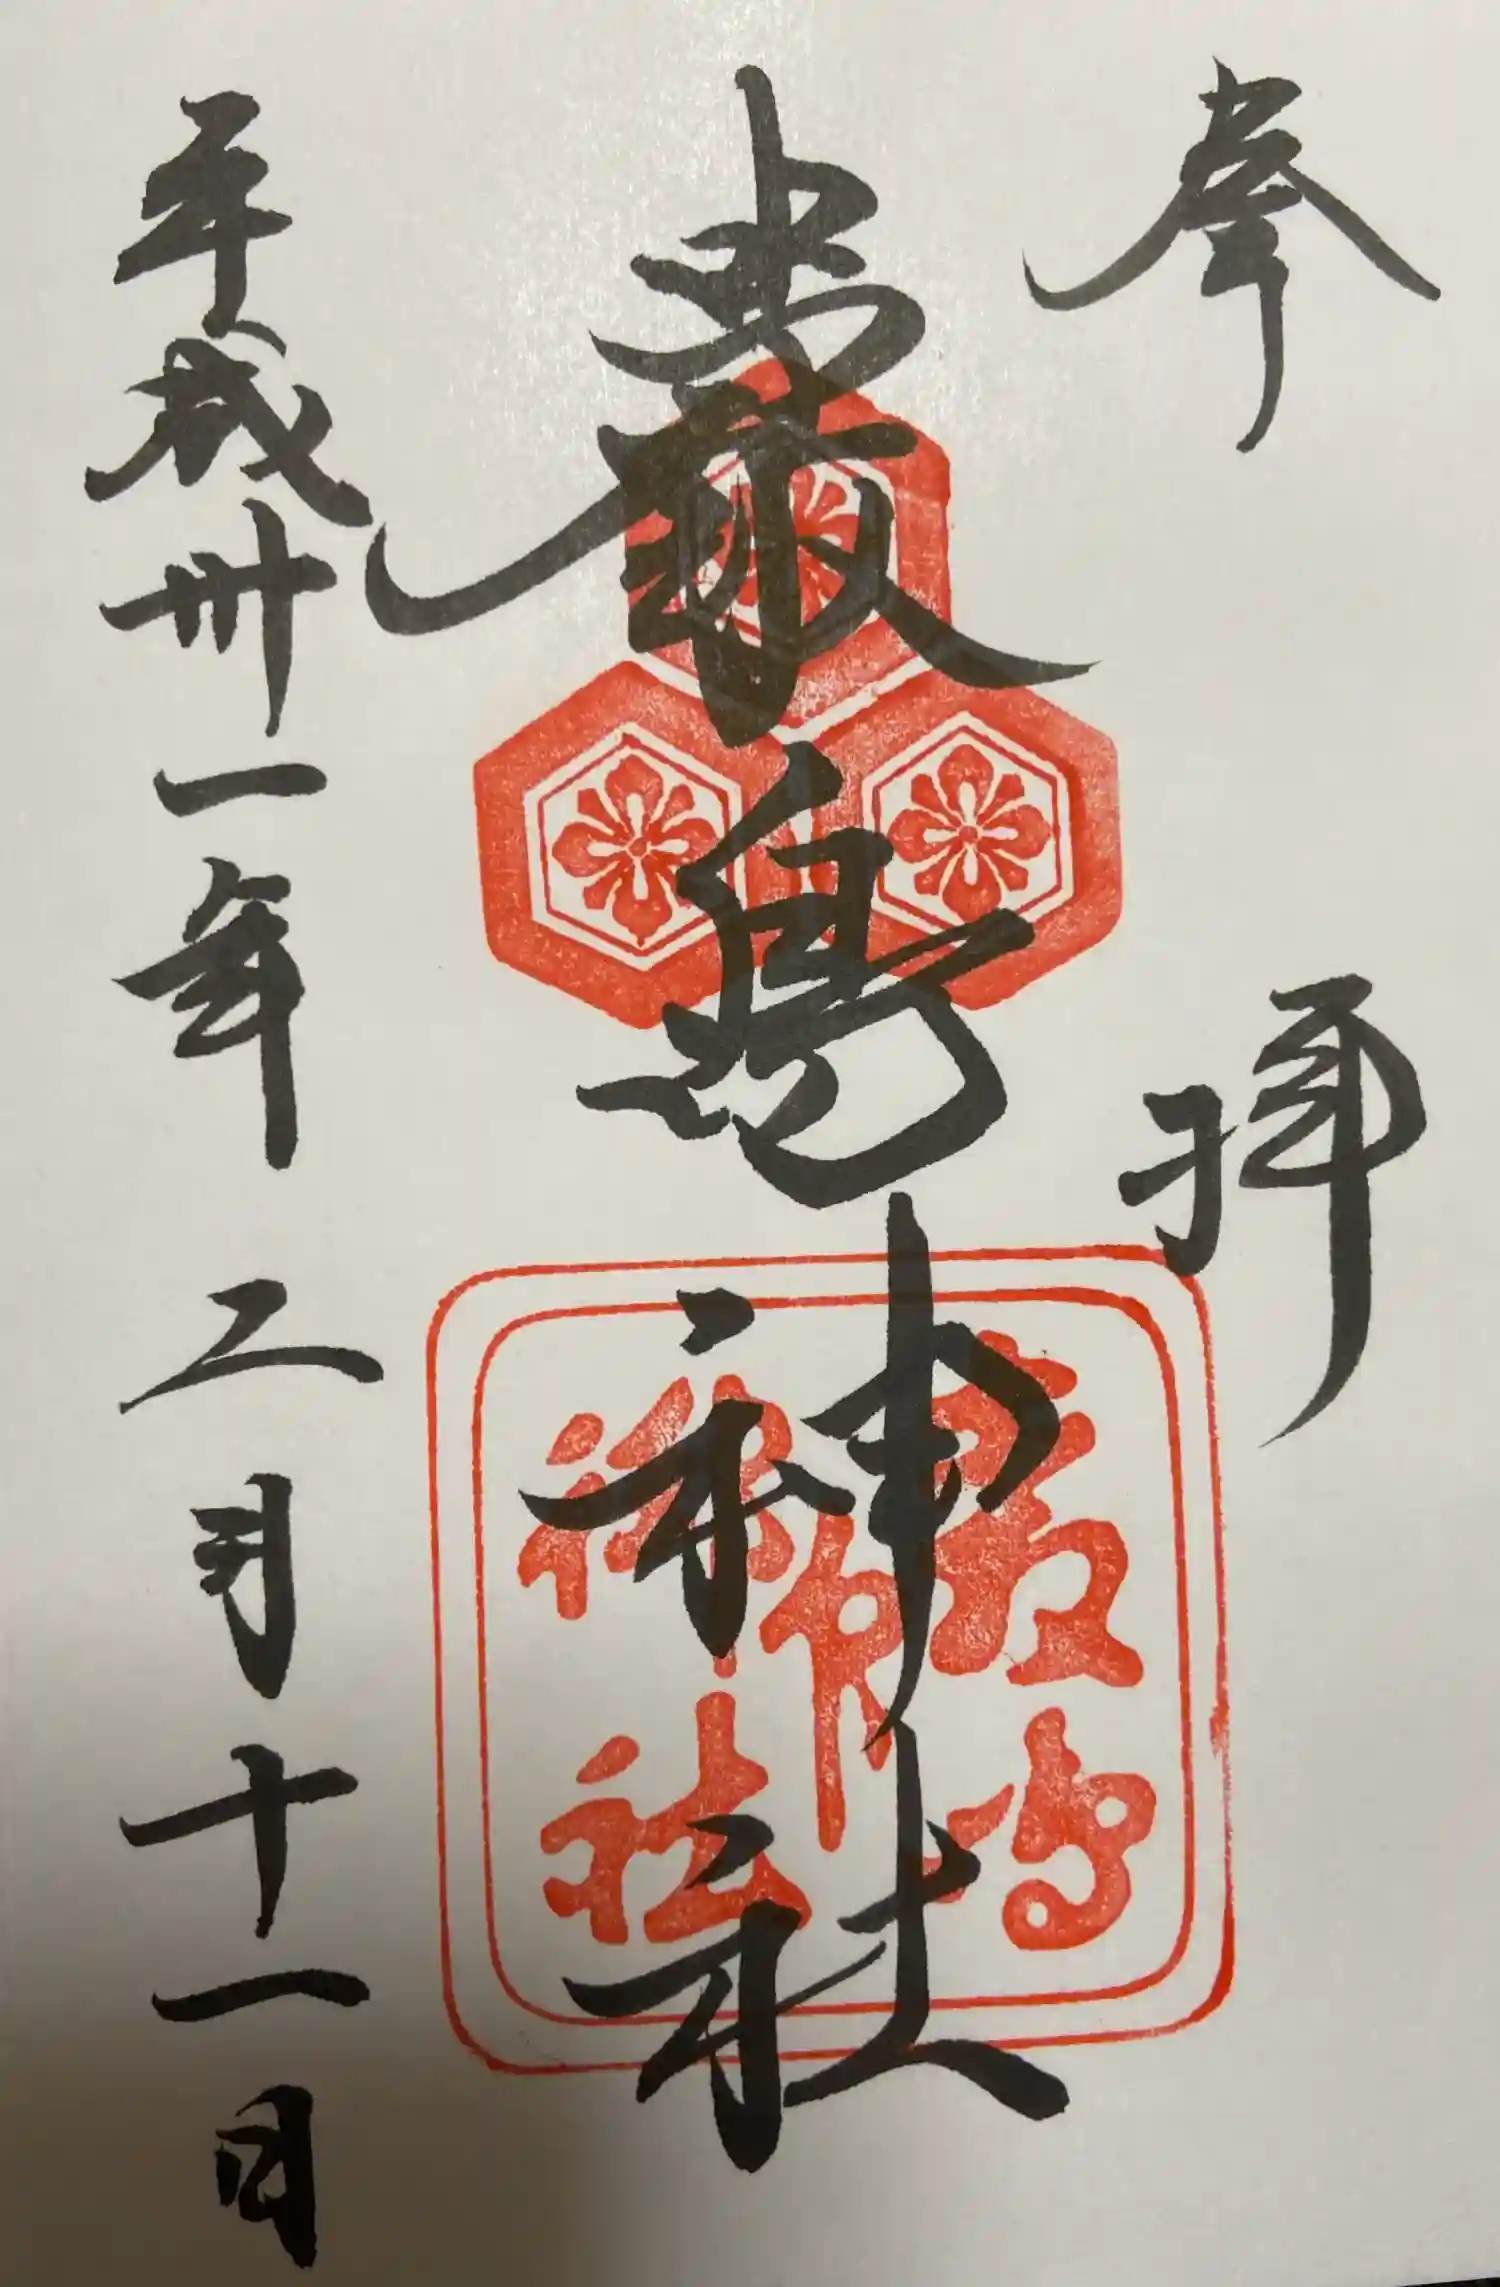 奉拝
嚴島神社
嚴島
神社
平成卅一年二月十一日